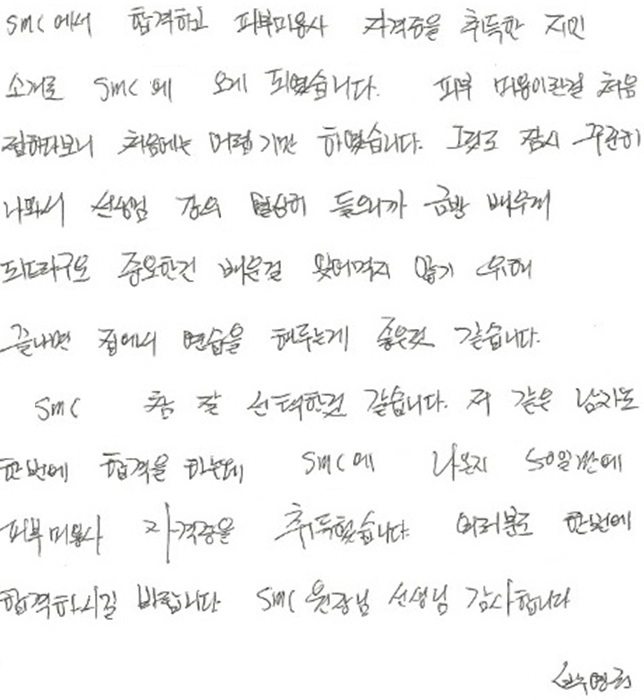 SMC에서 합격하고 피부미용사 자격증을 취득한 지인
소개로 SMC에 오게 되었습니다. 피부 미용이란걸 처음
접하다보니 처음에는 어렵기만 하였습니다. 그래도 잠시 꾸준히
나와서 선생님 강의 열심히 들으니까 금방 배우게
되더라구요 중요한건 배운걸 잊어먹지 않기 위해
끝나면 집에서 연습을 해두는게 좋은것 같습니다.
SMC 참 잘 선택한것 같습니다. 저 같은 남자도
한번에 합격을 하는데 SMC에 나온지 50일만에
피부미용사 자격증을 취득했습니다 여러분도 한번에
합격하시길 바랍니다 SMC 원장님 선생님 감사합니다